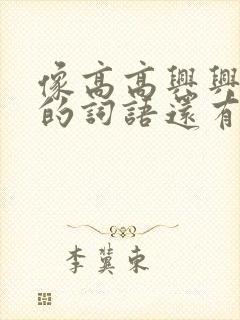 像高高興興
的詞語還有
李冀東